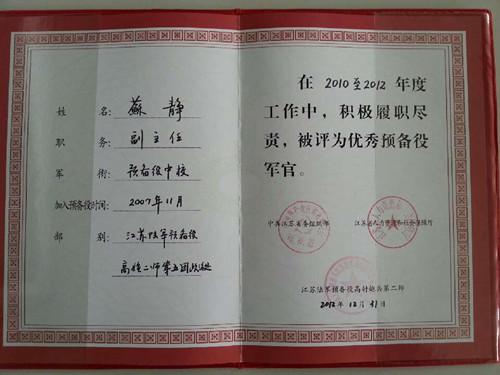 姓名：蘇静
职务：副主任
军衔：预备役中校
加入预备役时间：2007年11月
部别：江苏陆军预备役
高炮二师第五团政治处
在 2010至2012 年度
工作中，积极履职尽
责，被评为优秀预备役
军官。
中共江苏省委组织部
江苏省人力资源和社会保障厅
江苏陆军预备役高射炮兵第二师
2012年12月31日